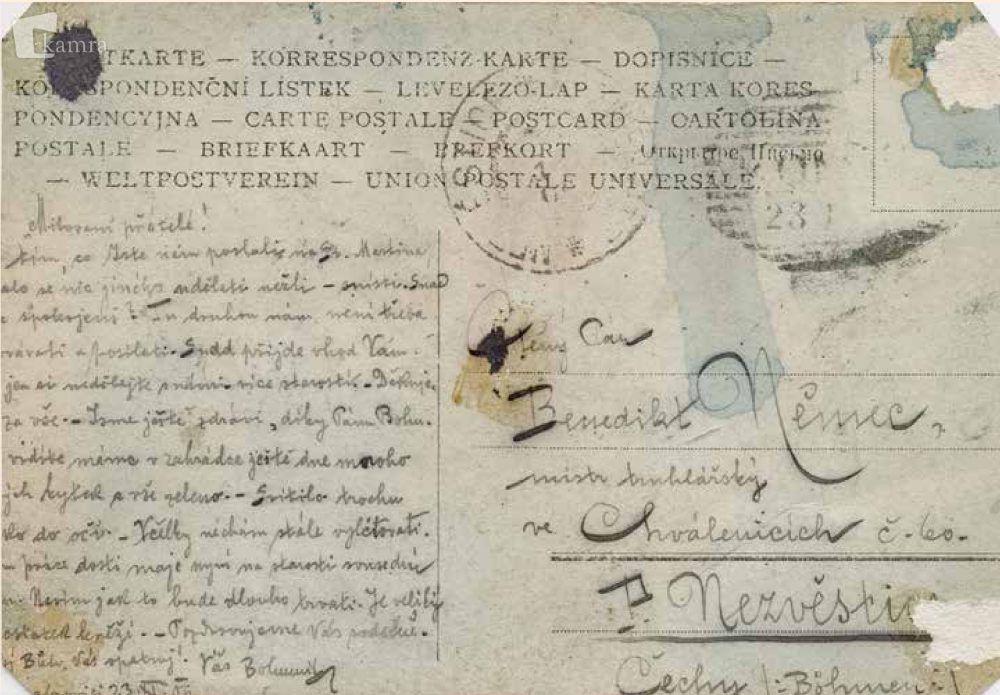 kamra
TKARTE — KORRESPONDENZ-KARTE — DOPISNICE —
KORESPONDENČNÍ LÍSTEK — LEVELEZŐ-LAP — KARTA KORES-
PONDENCYJNA — CARTE POSTALE — POSTCARD — CARTOLINA
POSTALE — BRIEFKAART — BREFKORT — Открытое Письмо
— WELTPOSTVEREIN — UNION POSTALE UNIVERSALE.
23
Milovaní přátelé!
co Jste nám poslali na Sv. Martina
se nic jiného udělati nežli - snísti. Snad
spokojeni? - druhou nám není třeba
a posílati. přijde vhod Vám.
jen si nedělejte s námi více starostí. - Děkuje
za vše. - Jsme ještě zdrávi, díky Pánu Bohu.
vidíte máme v zahrádce ještě dnes mnoho
kytek a vše zeleno. - trochu
do očí. - Včelky nechám stále vylétovati.
práce dosti mají nyní na starosti sousední
Nevím jak to bude dlouho trvati. Je veliký
- Pozdravujeme Vás srdečně.
Bůh Vás opatruj! Váš Bohumil
23
Ctěný Pán
Benedikt Němec,
mistr truhlářský
ve Chválenicích č. 60.
P. Nezvěstic
Čechy /: Böhmen :/